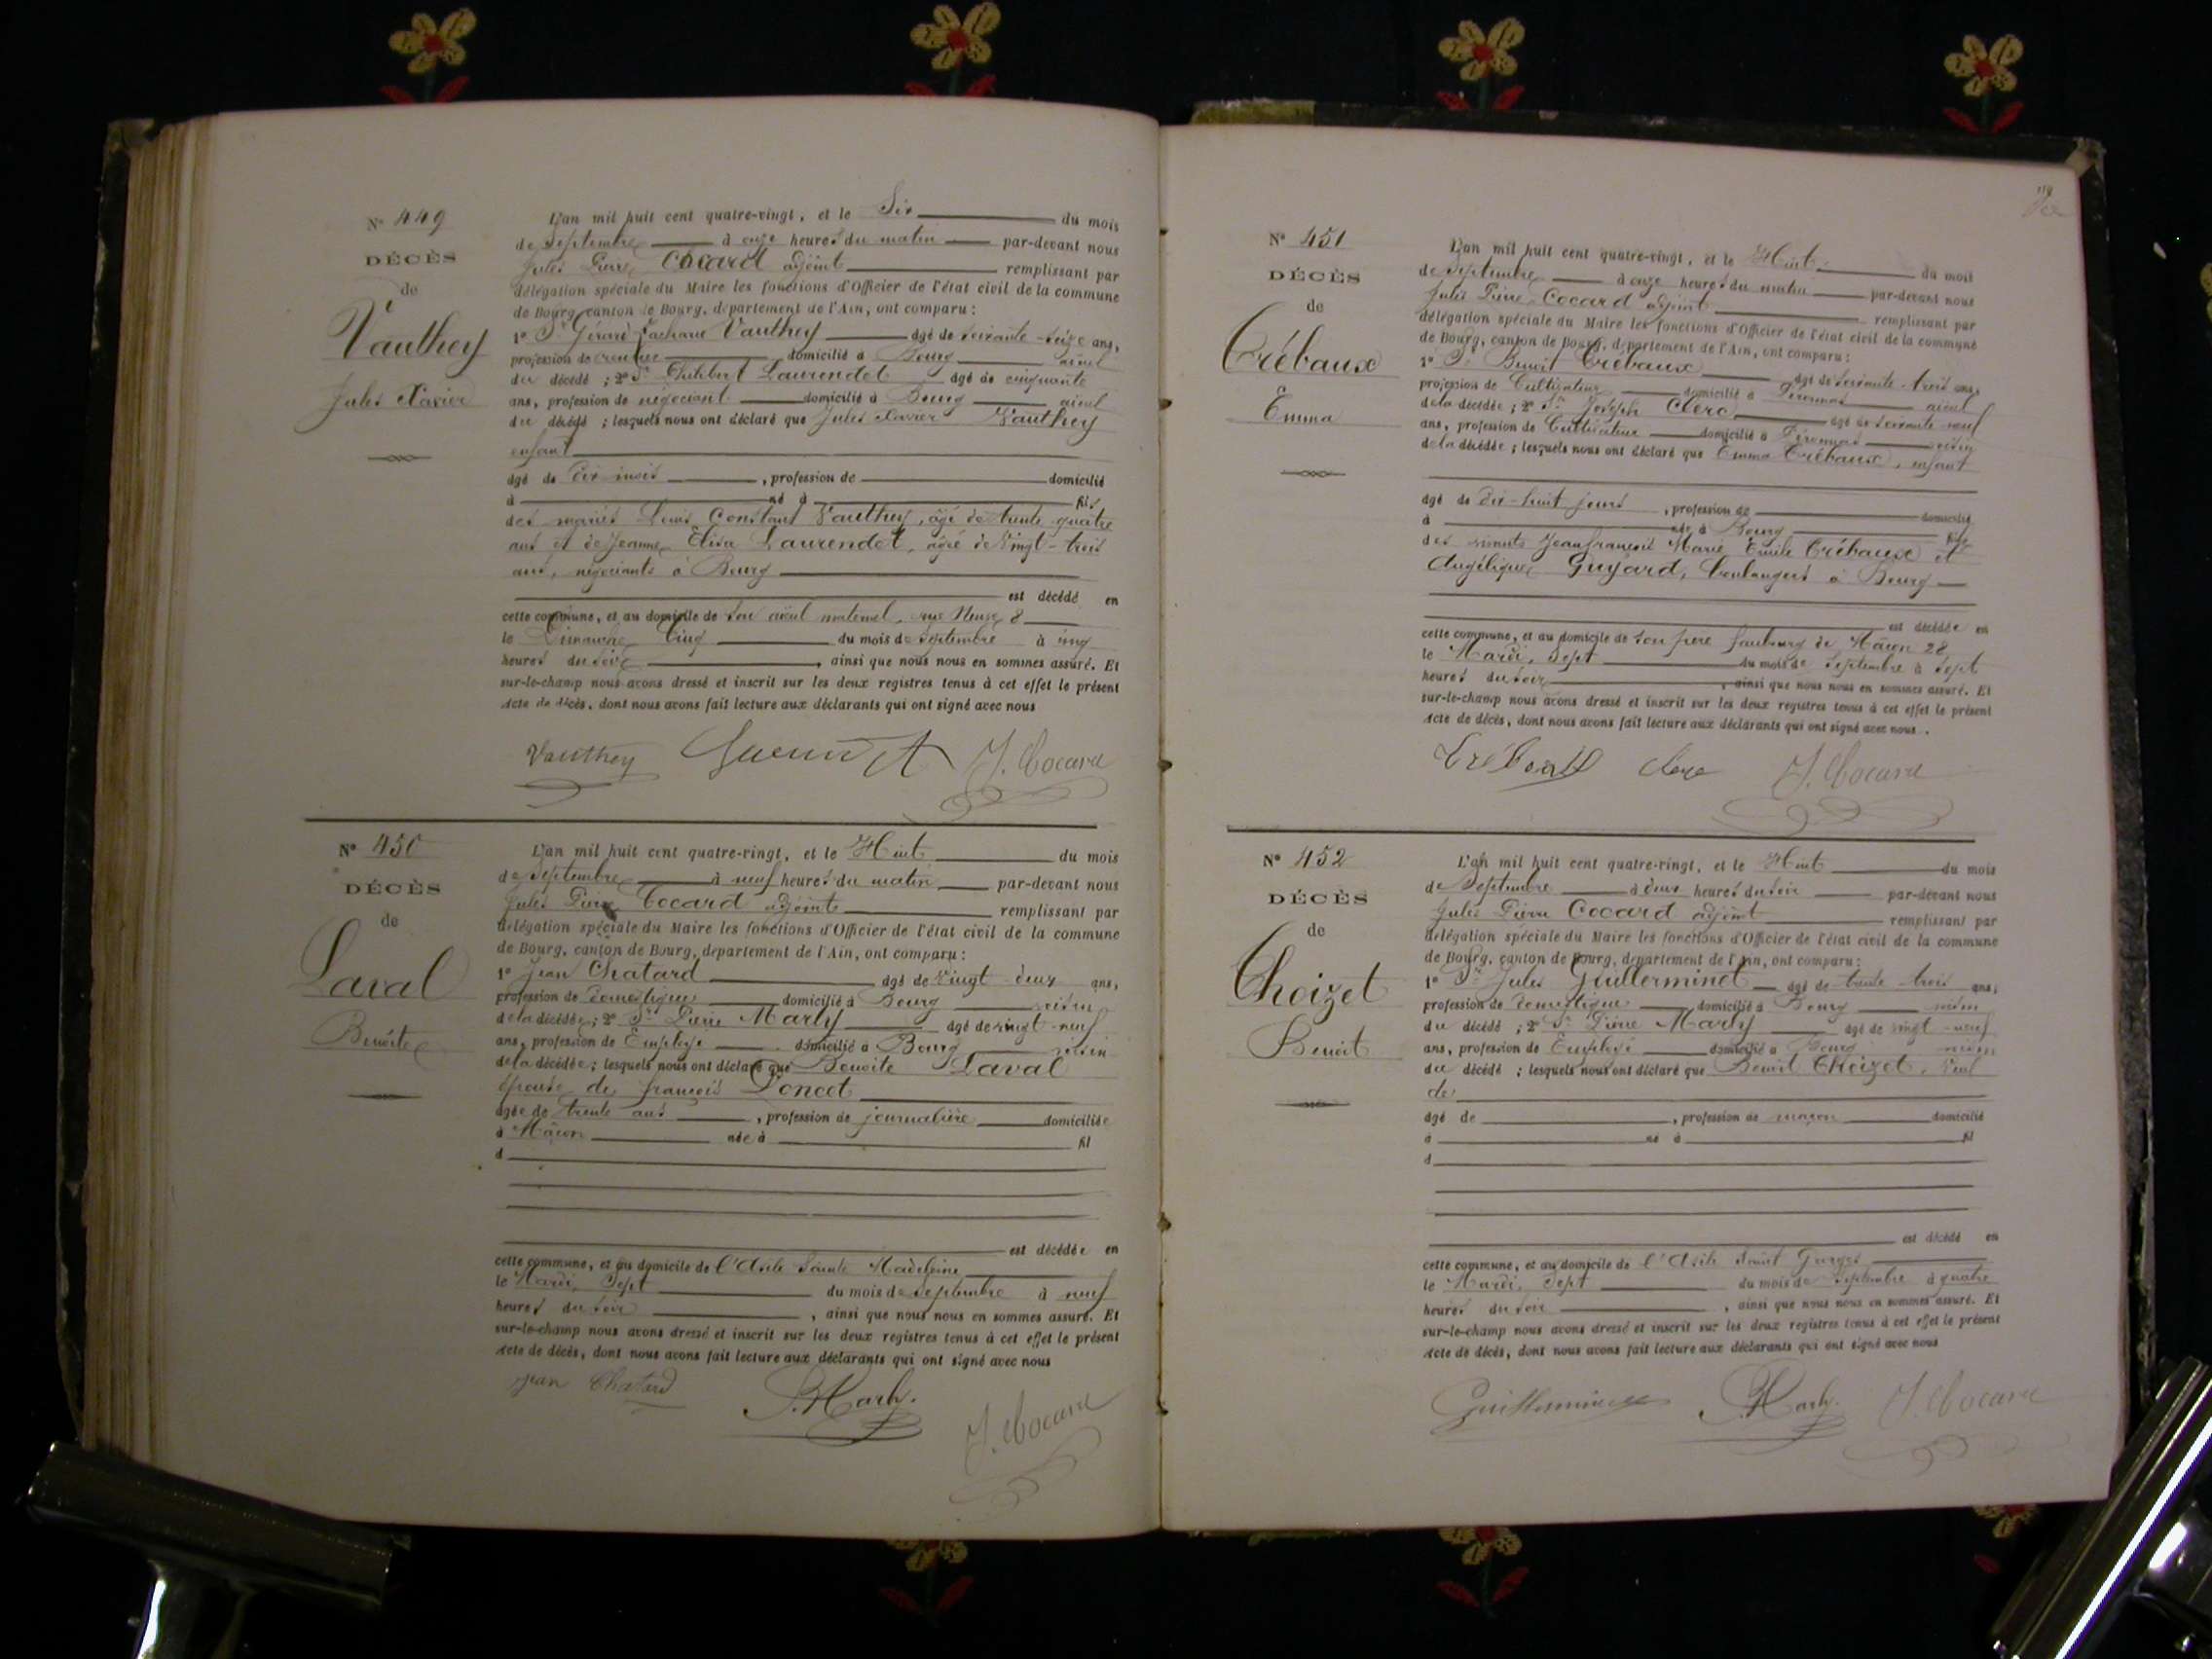 N° 449
DÉCÈS
de
Vauthey
Jules Xavier
L'an mil huit cent quatre-vingt, et le Six du mois
de Septembre à onze heures du matin par-devant nous
Jules Pierre Cocard adjoint remplissant par
délégation spéciale du Maire les fonctions d'Officier de l'état civil de la commune
de Bourg, canton de Bourg, département de l'Ain, ont comparu :
1° Sr Gérard Vauthey âgé de soixante-seize ans,
profession de rentier domicilié à Bourg aïeul
du décédé ; 2° Sr Laurendet âgé de cinquante
ans, profession de négociant domicilié à Bourg aïeul
du décédé ; lesquels nous ont déclaré que Jules Xavier Vauthey
enfant
âgé de dix mois , profession de domicilié
à né à fils
des mariés Louis Constant Vauthey, âgé de trente-quatre
ans et de Jeanne Elisa Laurendet, âgée de vingt-trois
ans, négociants à Bourg
est décédé en
cette commune, et au domicile de son aïeul maternel, rue Neuve, 8
le Dimanche Cinq du mois de Septembre à cinq
heures du soir , ainsi que nous nous en sommes assuré. Et
sur-le-champ nous avons dressé et inscrit sur les deux registres tenus à cet effet le présent
acte de décès, dont nous avons fait lecture aux déclarants qui ont signé avec nous
Vauthey J. Cocard
N° 450
DÉCÈS
de
Laval
Benoite
L'an mil huit cent quatre-vingt, et le Huit du mois
de Septembre à neuf heures du matin par-devant nous
Jules Pierre Cocard adjoint remplissant par
délégation spéciale du Maire les fonctions d'Officier de l'état civil de la commune
de Bourg, canton de Bourg, département de l'Ain, ont comparu :
1° Jean Chatard âgé de vingt-deux ans,
profession de domestique domicilié à Bourg voisin
de la décédée ; 2° Sr Pierre Marly âgé de vingt-neuf
ans, profession de Employé domicilié à Bourg voisin
de la décédée ; lesquels nous ont déclaré que Benoite Laval
épouse de françois Poncet
âgée de trente ans , profession de journalière domiciliée
à Mâcon née à fil
d
est décédée en
cette commune, et au domicile de l'Asile Sainte Madeleine
le Mardi, Sept du mois de Septembre à neuf
heures du soir , ainsi que nous nous en sommes assuré. Et
sur-le-champ nous avons dressé et inscrit sur les deux registres tenus à cet effet le présent
acte de décès, dont nous avons fait lecture aux déclarants qui ont signé avec nous
Jean Chatard P. Marly. J. Cocard
N° 451
DÉCÈS
de
Crébaux
Emma
L'an mil huit cent quatre-vingt, et le Huit du mois
de Septembre à onze heures du matin par-devant nous
Jules Pierre Cocard adjoint remplissant par
délégation spéciale du Maire les fonctions d'Officier de l'état civil de la commune
de Bourg, canton de Bourg, département de l'Ain, ont comparu :
1° Sr Benoit Crébaux âgé de soixante-trois ans,
profession de Cultivateur domicilié à Péronnas aïeul
de la décédée ; 2° Sr Joseph Clerc âgé de soixante-neuf
ans, profession de Cultivateur domicilié à Péronnas voisin
de la décédée ; lesquels nous ont déclaré que Emma Crébaux, enfant
âgé de dix-huit jours , profession de domicilié
à née à Bourg fille
des vivants Jean françois Marie Emile Crébaux et
Angélique Guyard, boulangers à Bourg
est décédée en
cette commune, et au domicile de son père faubourg de Mâcon 28
le Mardi, Sept du mois de Septembre à Sept
heures du soir , ainsi que nous nous en sommes assuré. Et
sur-le-champ nous avons dressé et inscrit sur les deux registres tenus à cet effet le présent
acte de décès, dont nous avons fait lecture aux déclarants qui ont signé avec nous .
Clerc J. Cocard
N° 452
DÉCÈS
de
Choizet
Benoit
L'an mil huit cent quatre-vingt, et le Huit du mois
de Septembre à deux heures du soir par-devant nous
Jules Pierre Cocard adjoint remplissant par
délégation spéciale du Maire les fonctions d'Officier de l'état civil de la commune
de Bourg, canton de Bourg, département de l'Ain, ont comparu :
1° Sr Jules Guillerminet âgé de trente-trois ans,
profession de domestique domicilié à Bourg voisin
du décédé ; 2° Sr Pierre Marly âgé de vingt-neuf
ans, profession de Employé domicilié à Bourg voisin
du décédé ; lesquels nous ont déclaré que Benoit Choizet, veuf
de
âgé de , profession de maçon domicilié
à né à fil
d
est décédé en
cette commune, et au domicile de l'Asile Saint Georges
le Mardi, Sept du mois de Septembre à quatre
heures du soir , ainsi que nous nous en sommes assuré. Et
sur-le-champ nous avons dressé et inscrit sur les deux registres tenus à cet effet le présent
acte de décès, dont nous avons fait lecture aux déclarants qui ont signé avec nous
Guillerminet P. Marly. J. Cocard